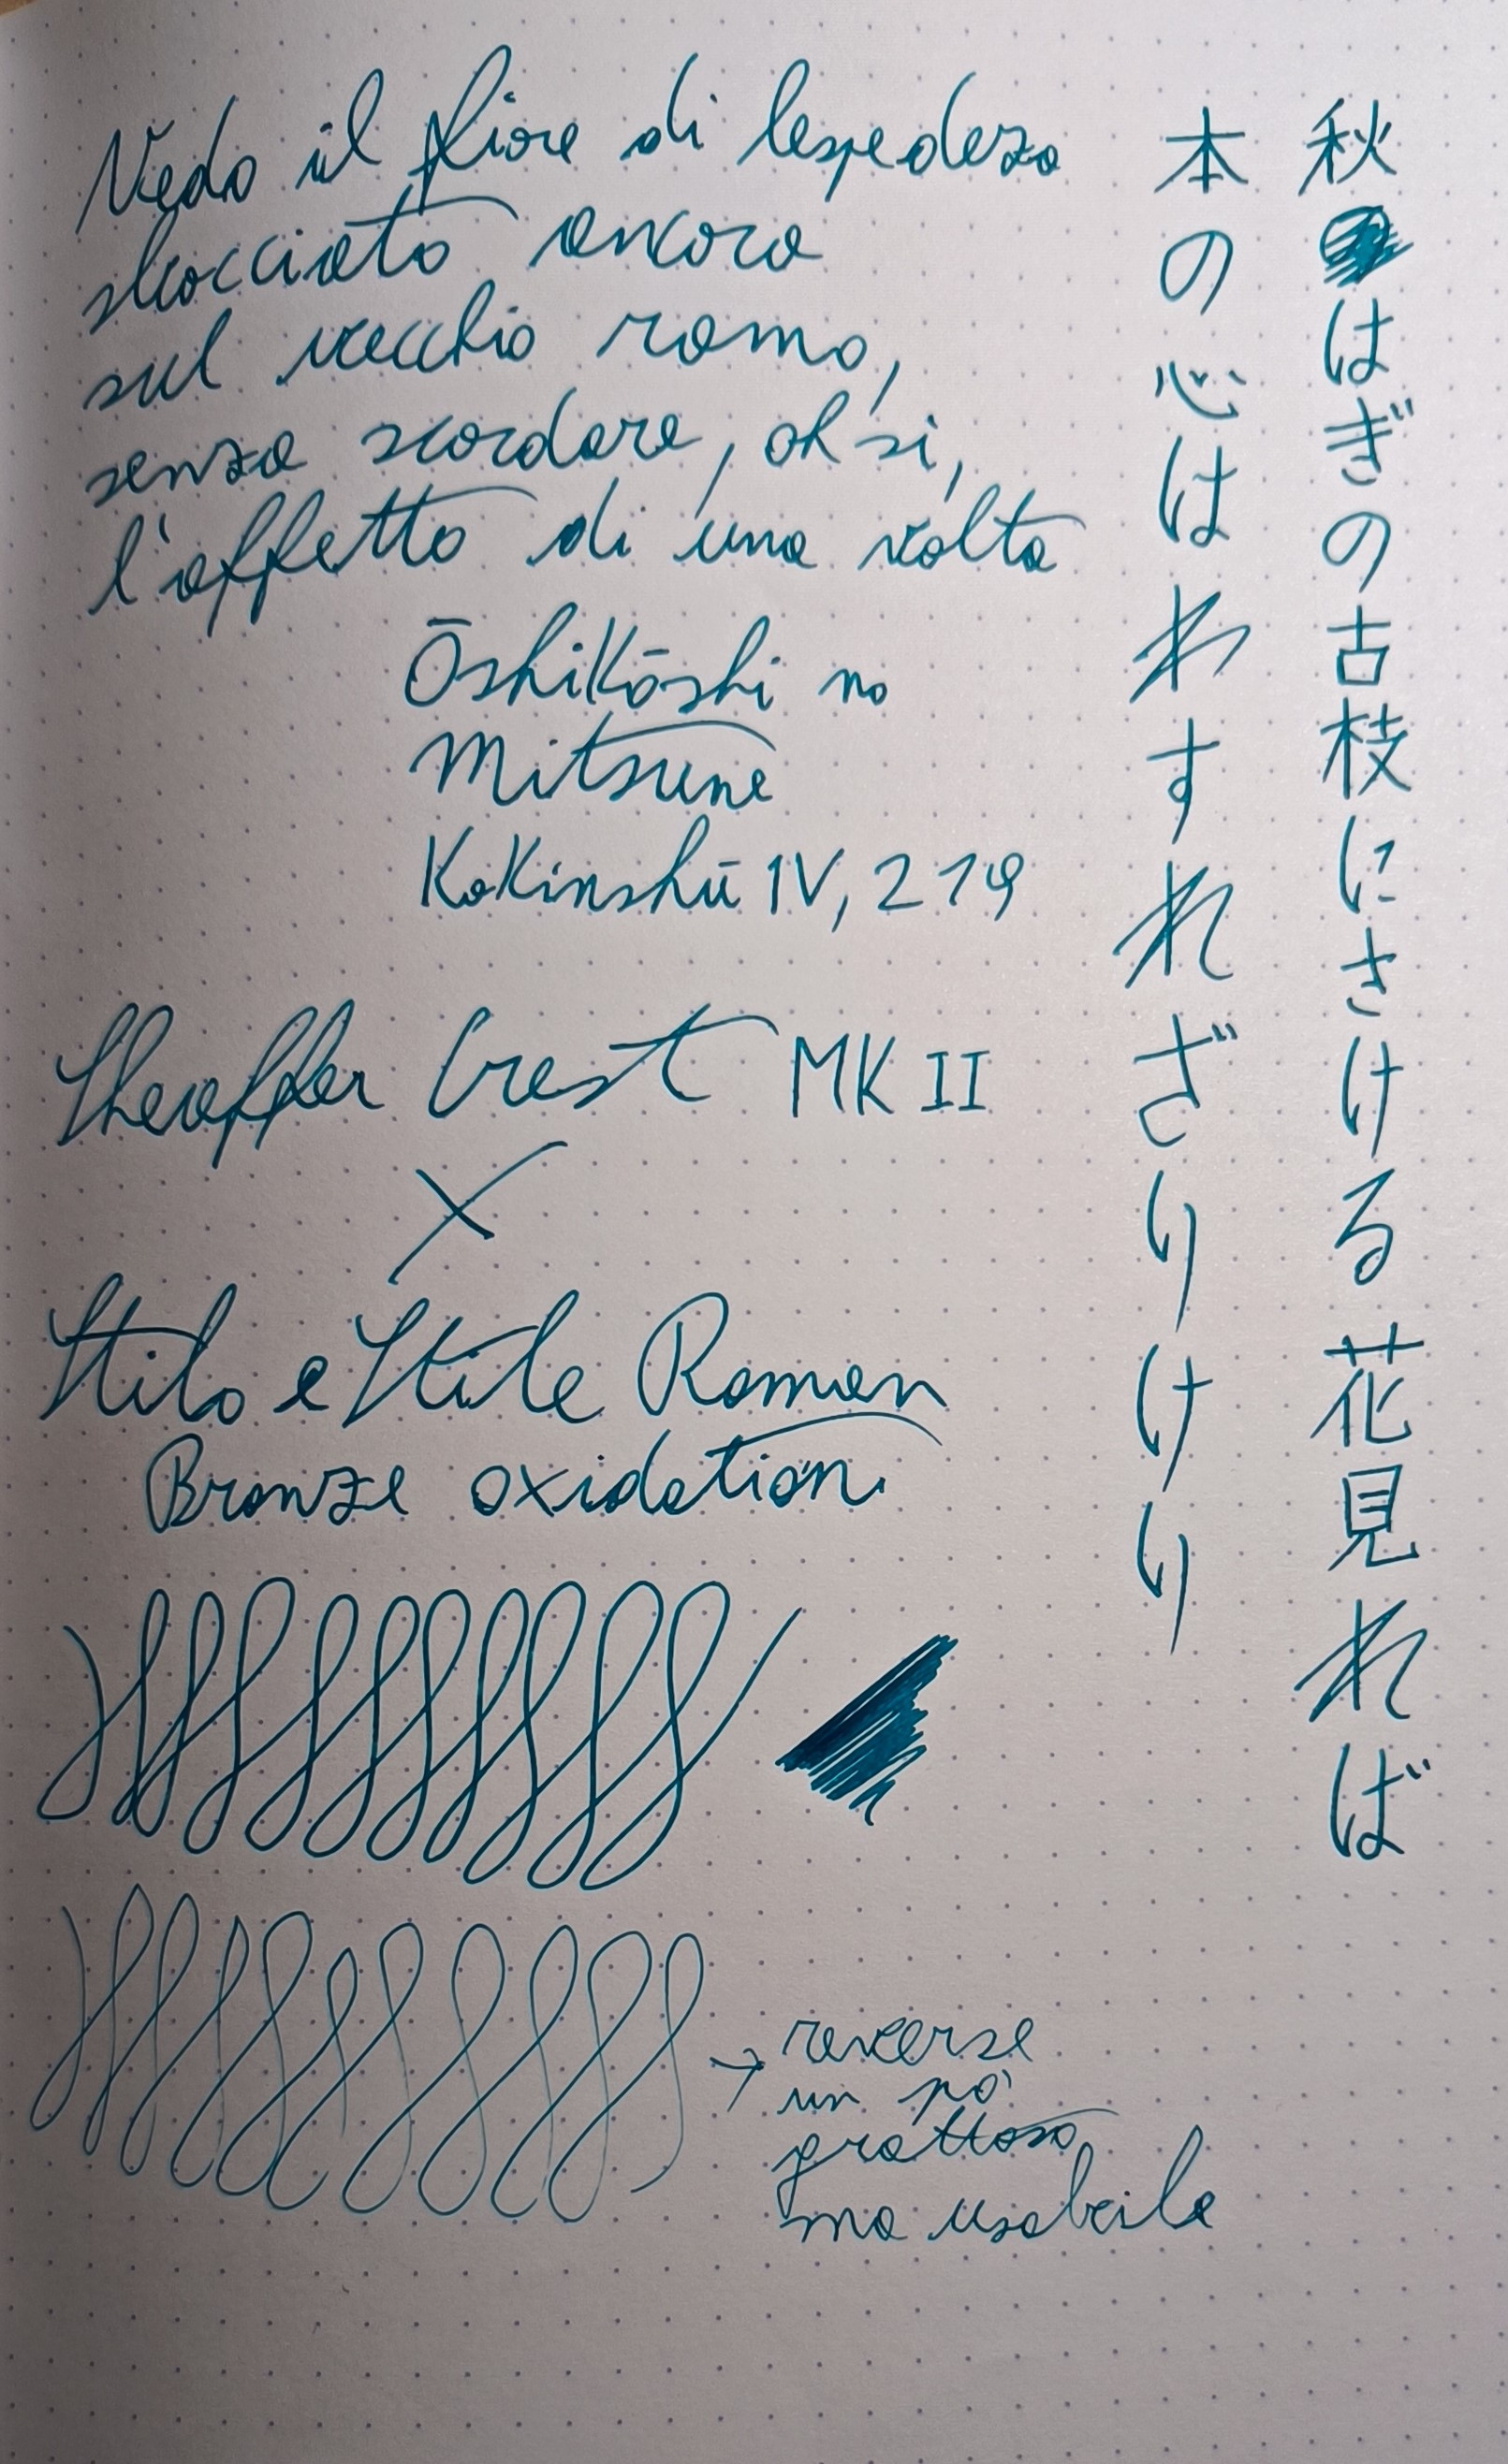 Vedo il fiore di lespedeza
sbocciato ancora
sul vecchio ramo,
senza scordare, oh sì,
l'affetto di una volta
Ōshikōshi no
Mitsune
Kokinshū IV, 219
秋はぎの古枝にさける花見れば
本の心はわすれざりけり
Sheaffer Crest MK II
X
Stilo e Stile Roman
Bronze oxidation
→ reverse
un pò
grattoso
ma usabile